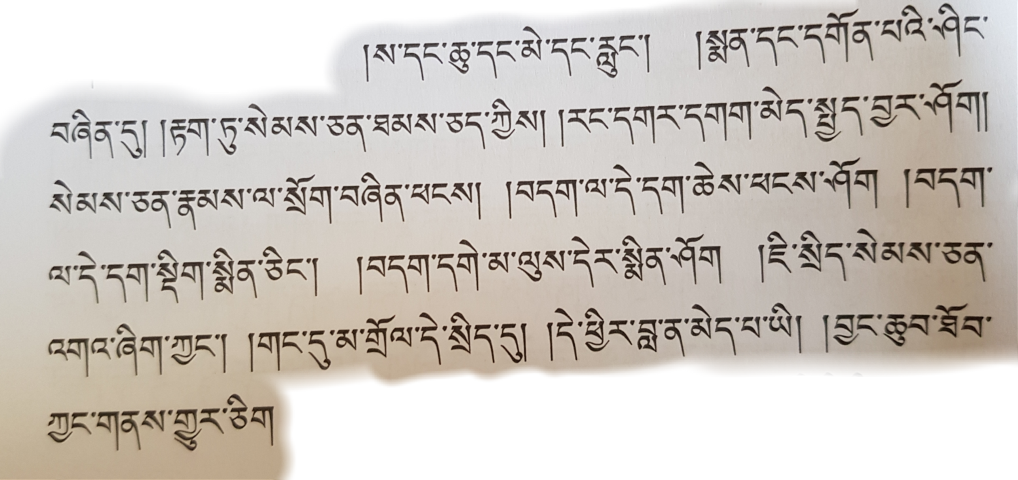 །ས་དང་ཆུ་དང་མེ་དང་རླུང་། །སྨན་དང་དགོན་པའི་ཤིང་
བཞིན་དུ། །རྟག་ཏུ་སེམས་ཅན་ཐམས་ཅད་ཀྱིས། །རང་དགར་དགག་མེད་སྤྱད་བྱར་ཤོག།
སེམས་ཅན་རྣམས་ལ་སྲོག་བཞིན་ཕངས། །བདག་ལ་དེ་དག་ཆེས་ཕངས་ཤོག །བདག་
ལ་དེ་དག་སྡིག་སྨིན་ཅིང་། །བདག་དགེ་མ་ལུས་དེར་སྨིན་ཤོག །ཇི་སྲིད་སེམས་ཅན་
འགའ་ཞིག་ཀྱང་། །གང་དུ་མ་གྲོལ་དེ་སྲིད་དུ། །དེ་ཕྱིར་བླ་ན་མེད་པ་ཡི། །བྱང་ཆུབ་ཐོབ་
ཀྱང་གནས་གྱུར་ཅིག